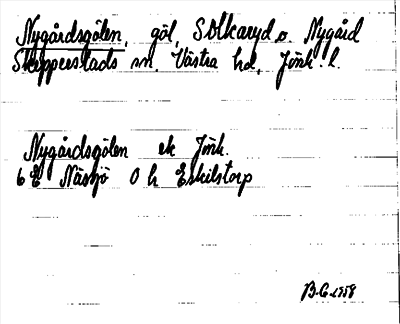 Nygårdsgölen, göl, Solkaryd o. Nygård
Skepperstads sn. Västra hd. Jönk. l.
Nygårdsgölen ek Jönk.
6 E Nässjö 0 h Eskilstorp
B.G. 1958